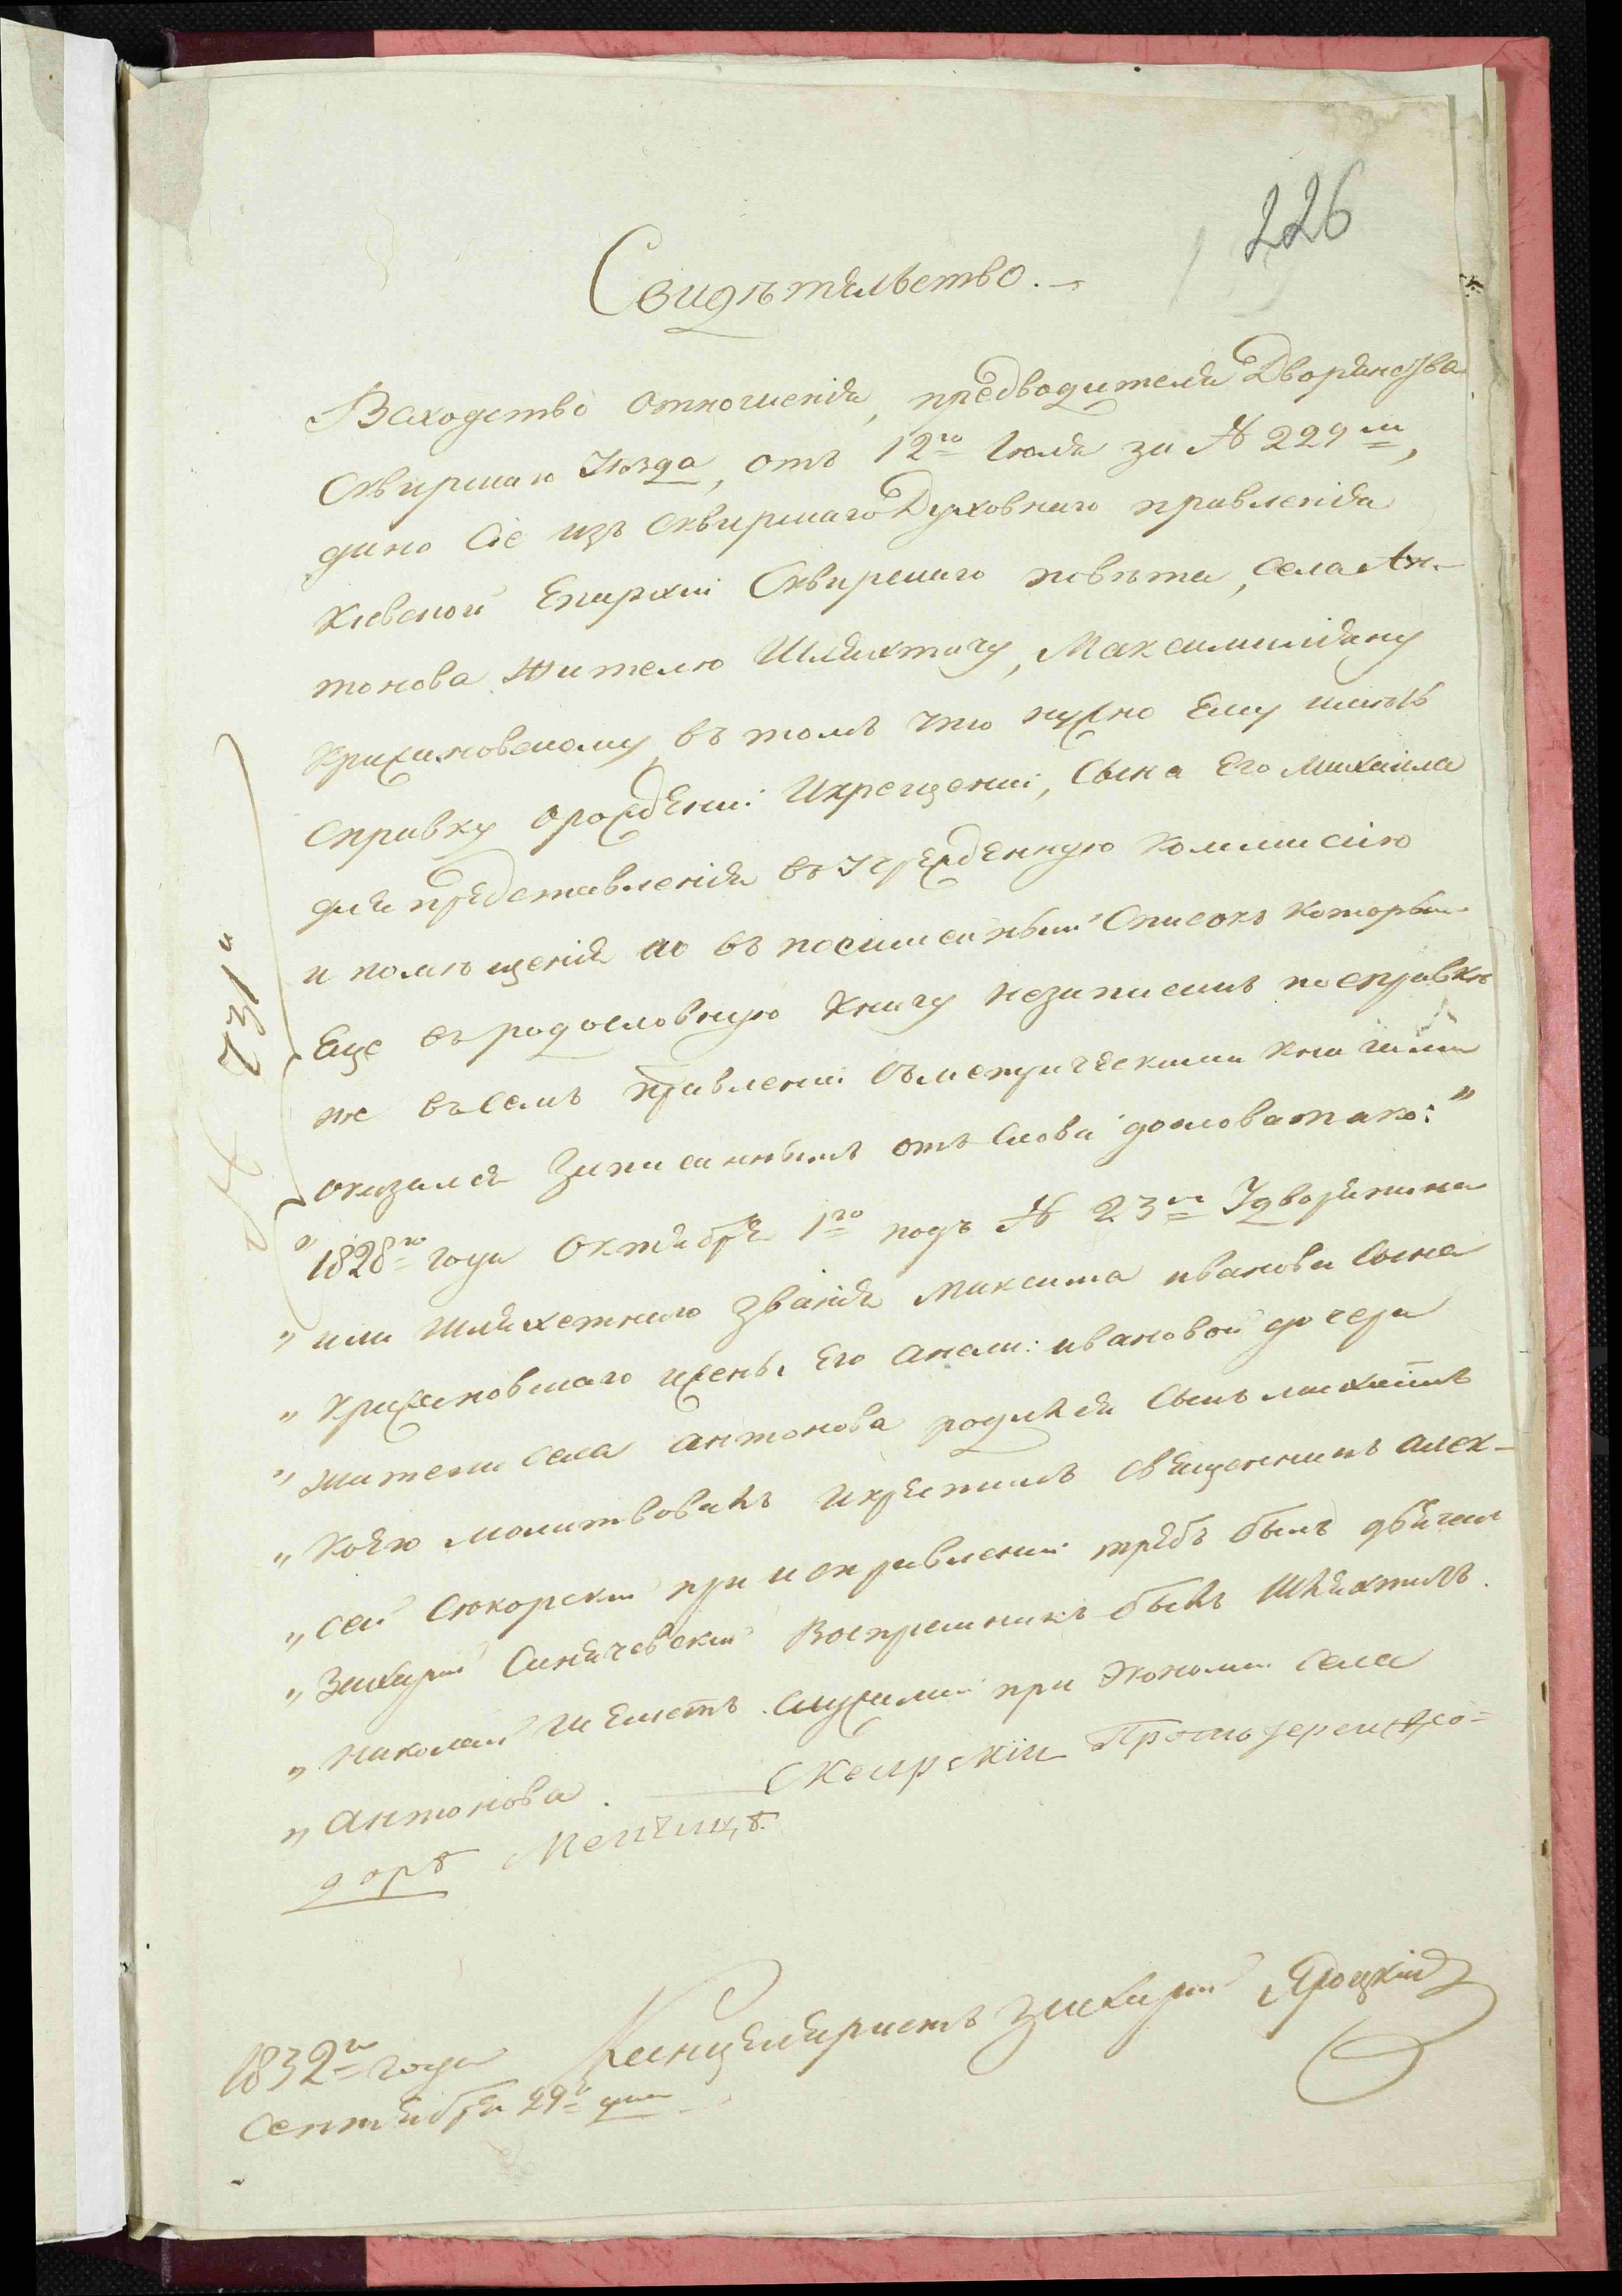 226
Свидѣтельство.
Всходство отношенія, предводителя Дворянства
Сквирскаго Уѣзда, отъ 12го Іюля за № 229м,
дано Сіе изъ Сквирскаго Духовнаго правленія
Кіевской Епархіи Сквирскаго повѣта, села Ан-
тонова жителю Шляхтичу, Максимиліяну
Крижановскому въ томъ что нужно Ему имѣть
справку орожденіи Икрещеніи, Сына Его Михаила
для представленія въ Учрежденную Коммисію
и помѣщенія во въ посимейный Списокъ который
Еще въ родословную Книгу незаписанъ посправкѣ
же въ семъ правленіи съметрическими книгами
оказался Записаннымъ отъ слова дослова тако:"
"1828го года Октября 1го подъ № 23м Удворянина
" или шляхетнаго Званія Максима иванова сына
" Крижановскаго ижены Его анели: ивановой дочери
" жителя села антонова родился Сынъ михаилъ
" Коего молитвовалъ икрестилъ священникъ алек-
" сей Сикорскій при исправленіи требъ былъ дьячекъ
" Захарій Синячевскій Воспреемникъ былъ Шляхтичъ
" николай служащій при Экономіи села
" антонова. Сквирскій Протоіерей Ѳео-
доръ Мончицъ.
Канцеляристъ Захарій Яроцкій
1832го года
Сентября 29го дня
№ 731"